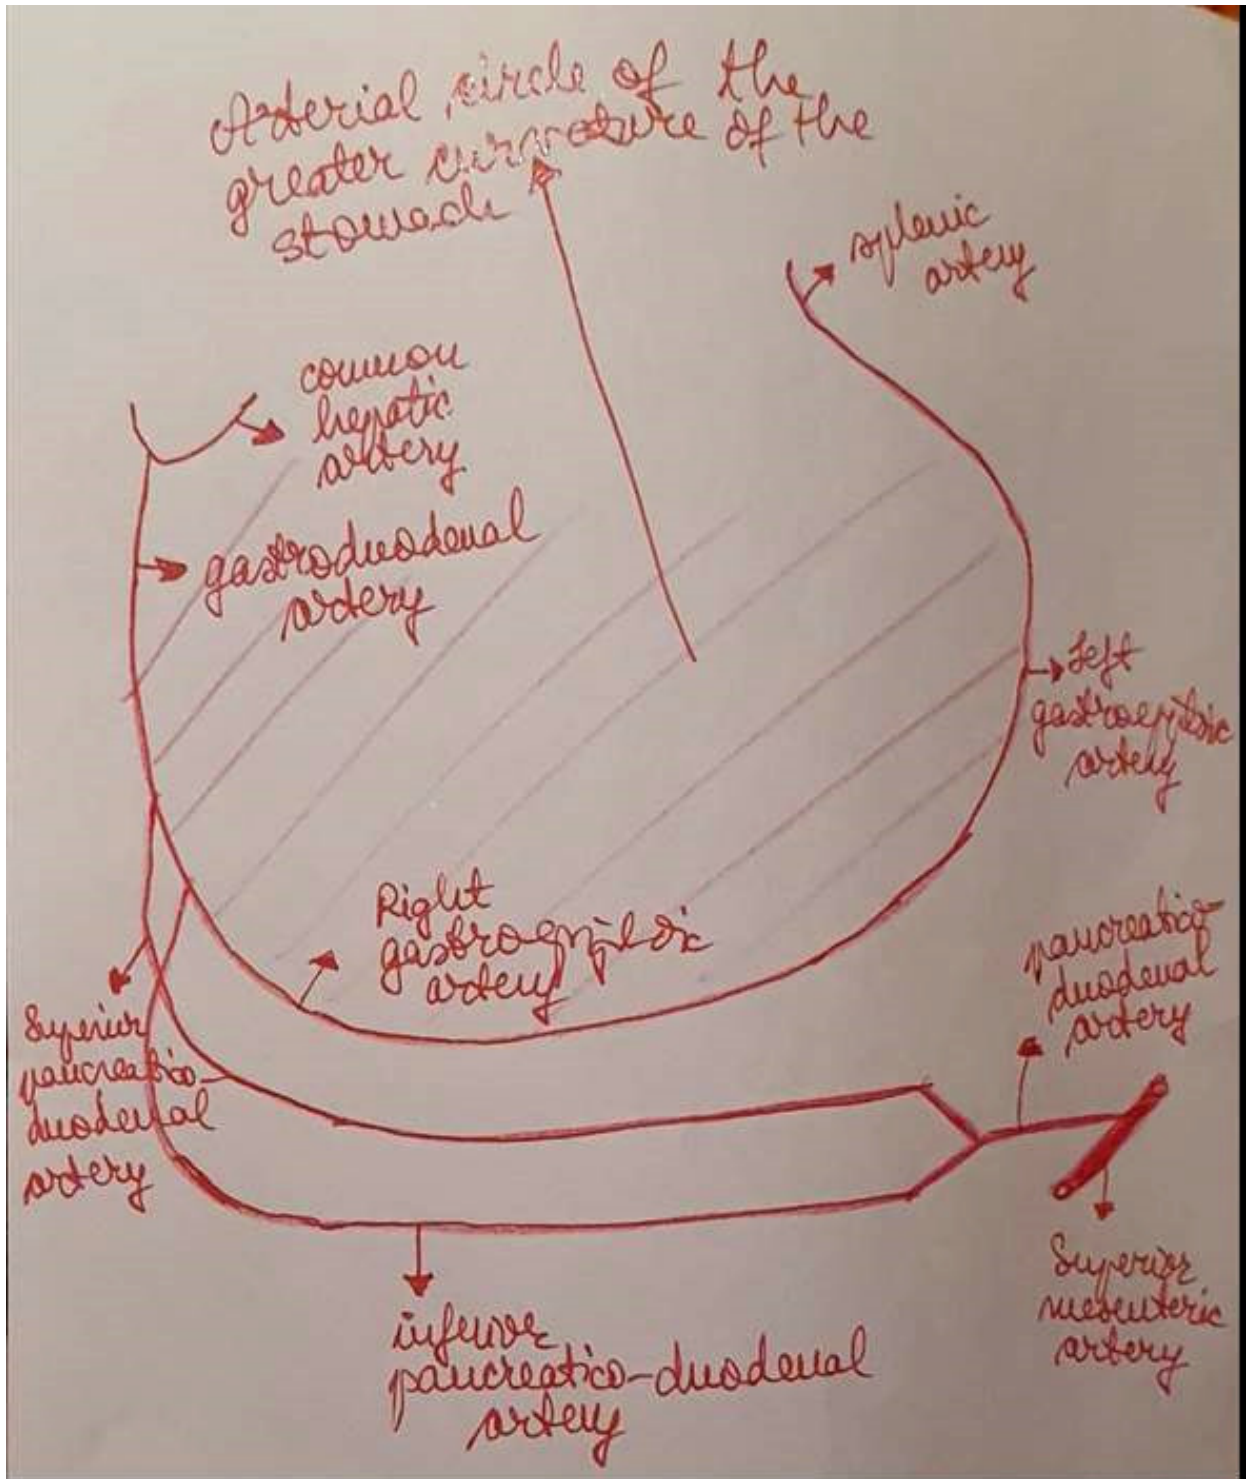 Arterial circle of the
greater curvature of the
stomach
splenic
artery
common
hepatic
artery
gastroduodenal
artery
Left
gastroepiploic
artery
Right
gastroepiploic
artery
pancreatico-
duodenal
artery
Superior
pancreatico-
duodenal
artery
Superior
mesenteric
artery
inferior
pancreatico-duodenal
artery